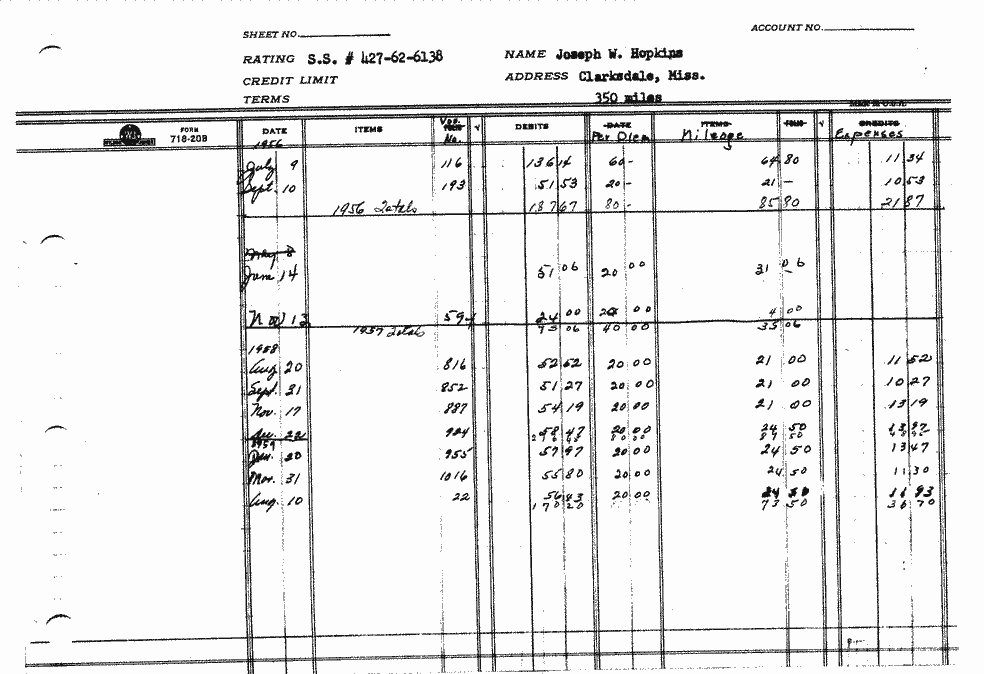 SHEET NO.
ACCOUNT NO.
RATING S.S. # 427-62-6138 NAME Joseph W. Hopkins
CREDIT LIMIT ADDRESS Clarksdale, Miss.
TERMS 350 miles
FORM 718-20B DATE ITEMS Vou. No. √ DEBITS DATE Per Diem ITEMS Mileage FOLIO √ CREDITS Expenses
1956
July 9 116 136 14 60 - 64 80 11 34
Sept. 10 193 51 53 20 - 21 - 10 53
1956 Totals 187 67 80 - 85 80 21 87
May 8
June 14 51 06 20 00 31 06
Nov 13 594 24 00 20 00 4 00
1957 Totals 75 06 40 00 35 06
1958
Aug 20 816 52 52 20 00 21 00 11 52
Sept. 21 852 51 27 20 00 21 00 10 27
Nov. 17 887 54 19 20 00 21 00 13 19
Dec. 22 924 58 47 20 00 24 50 13 97
80 00 87 50
1959
Jan. 20 955 57 97 20 00 24 50 13 47
Mar. 31 1016 55 80 20 00 24 50 11 30
Aug. 10 22 56 43 20 00 24 50 11 93
170 20 73 50 36 70